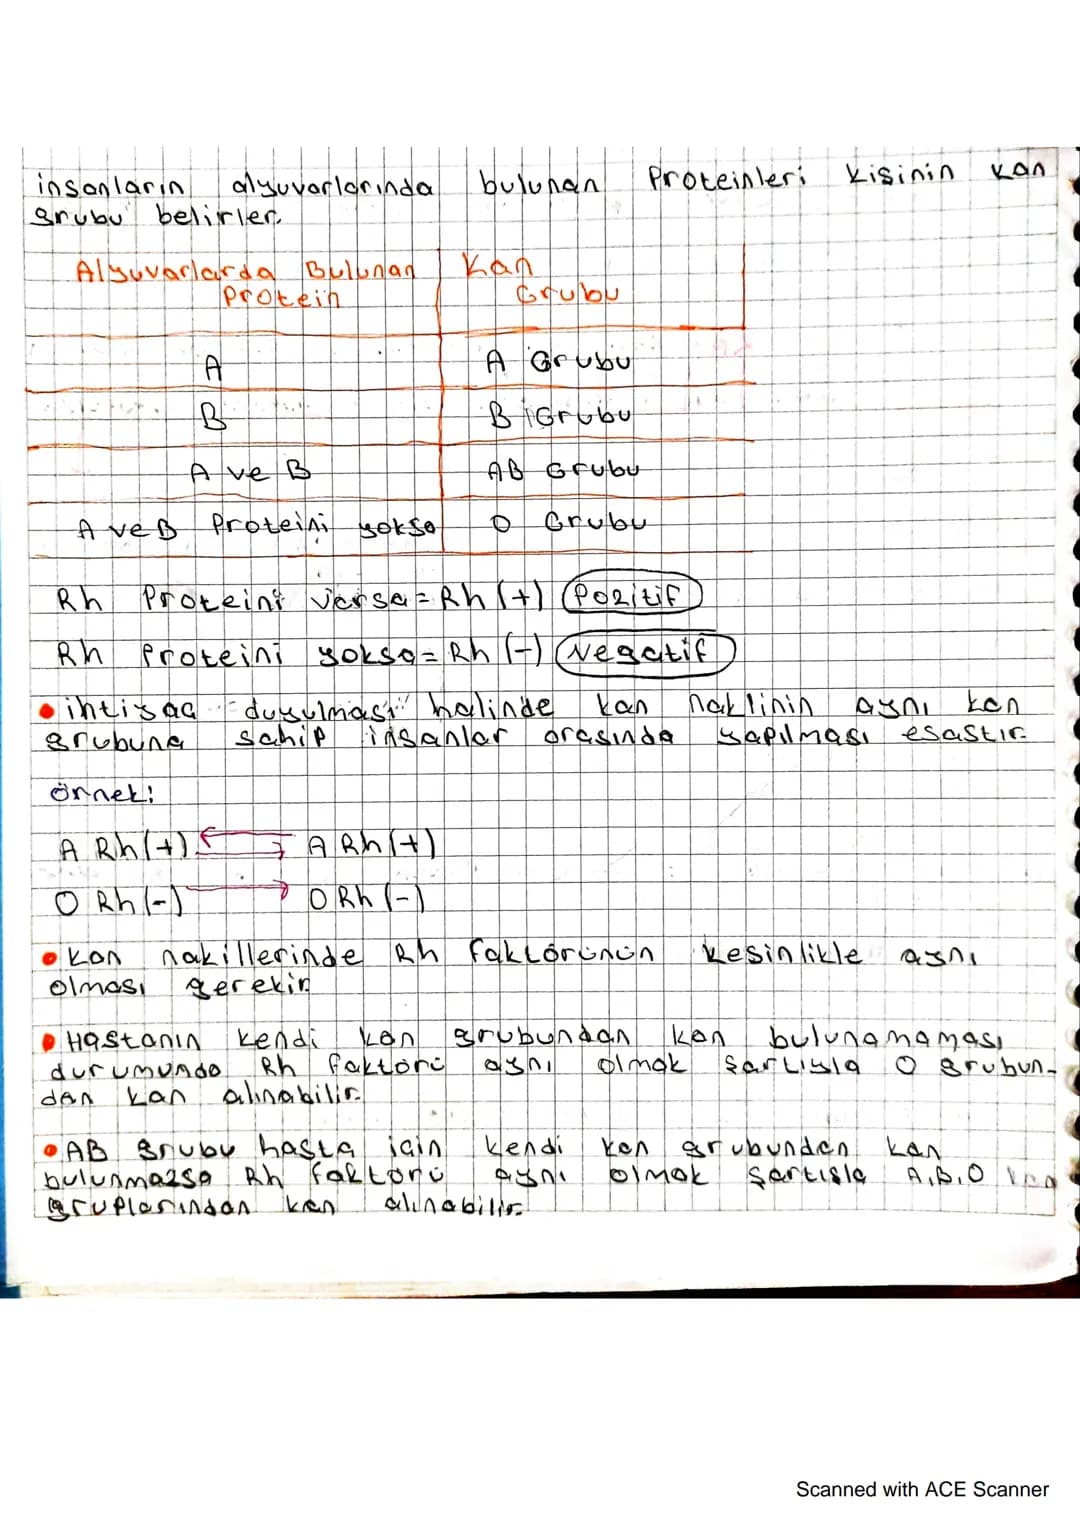 insanların alyuvarlarında bulunan Proteinleri kişinin kan
grubu belirler.
Alyuvarlarda Bulunan Kan
Protein Grubu
A A Grubu
B B Grubu
A ve B AB Grubu
A ve B Proteini yoksa O Grubu
Rh Proteini varsa = Rh (+) Pozitif
Rh Proteini yoksa = Rh (-) Negatif
• ihtiyaç duyulması halinde kan naklinin aynı kan
grubuna sahip insanlar arasında yapılması esastır.
Örnek:
A Rh(+) A Rh(+)
O Rh(-) O Rh (-)
• Kan nakillerinde Rh faktörünün kesinlikle aynı
olması gerekir
• Hastanın kendi kan grubundan kan bulunamaması
durumunda Rh faktörü aynı olmak şartıyla O grubun-
dan kan alınabilir.
• AB grubu hasta için kendi kan grubunden kan
bulunmazsa Rh faktörü aynı olmak şartıyla A,B,O
gruplarından kan alınabilir.
Scanned with ACE Scanner